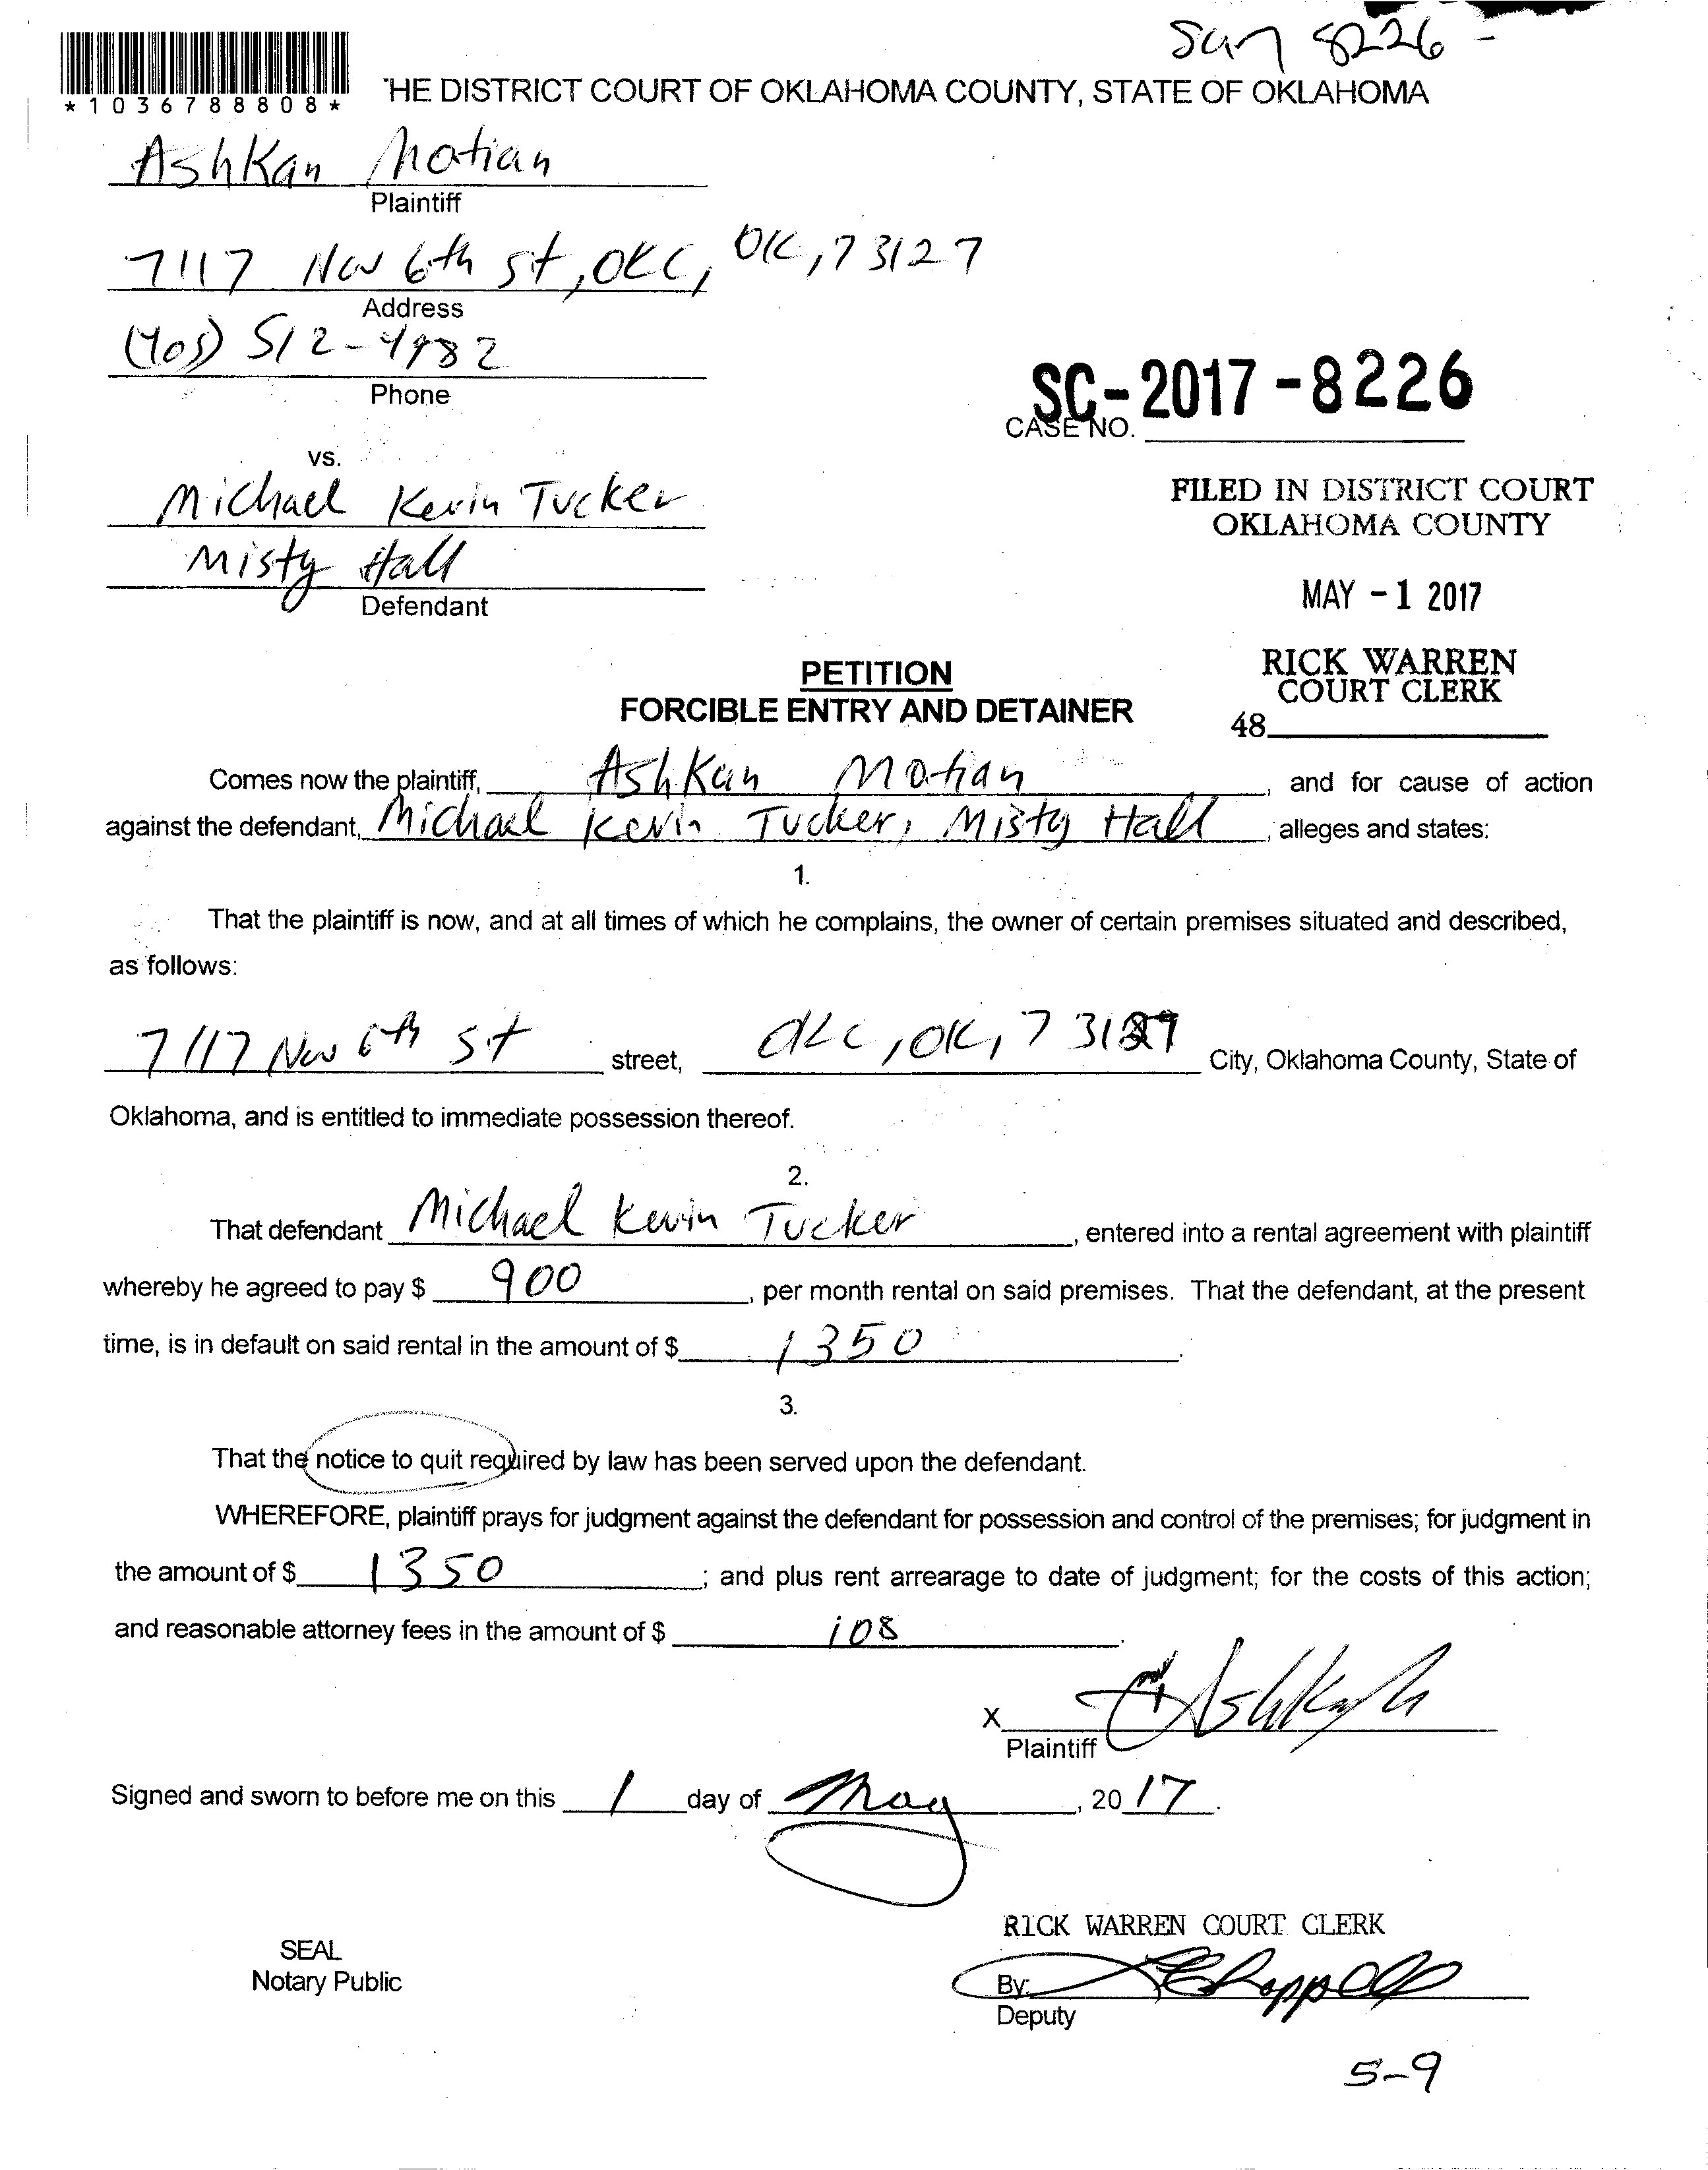 8226 -
*1036788808*
HE DISTRICT COURT OF OKLAHOMA COUNTY, STATE OF OKLAHOMA
Ashkan Motian
Plaintiff
7117 NW 6th st, OKC, OK, 73127
Address
(405) 512-4982
Phone
SC-2017-8226
CASE NO.
vs.
Michael Kevin Tucker
Misty Hall
Defendant
FILED IN DISTRICT COURT
OKLAHOMA COUNTY
MAY -1 2017
RICK WARREN
COURT CLERK
48
PETITION
FORCIBLE ENTRY AND DETAINER
Comes now the plaintiff, Ashkan Motian, and for cause of action
against the defendant, Michael Kevin Tucker, Misty Hall, alleges and states:
1.
That the plaintiff is now, and at all times of which he complains, the owner of certain premises situated and described,
as follows:
7117 NW 6th st street, OKC, OK, 73127 City, Oklahoma County, State of
Oklahoma, and is entitled to immediate possession thereof.
2.
That defendant Michael Kevin Tucker, entered into a rental agreement with plaintiff
whereby he agreed to pay $ 900, per month rental on said premises. That the defendant, at the present
time, is in default on said rental in the amount of $ 1350.
3.
That the notice to quit required by law has been served upon the defendant.
WHEREFORE, plaintiff prays for judgment against the defendant for possession and control of the premises; for judgment in
the amount of $ 1350; and plus rent arrearage to date of judgment; for the costs of this action;
and reasonable attorney fees in the amount of $ 108.
X
Plaintiff
Signed and sworn to before me on this 1 day of May, 20 17.
RICK WARREN COURT CLERK
SEAL
Notary Public
By:
Deputy
5-9